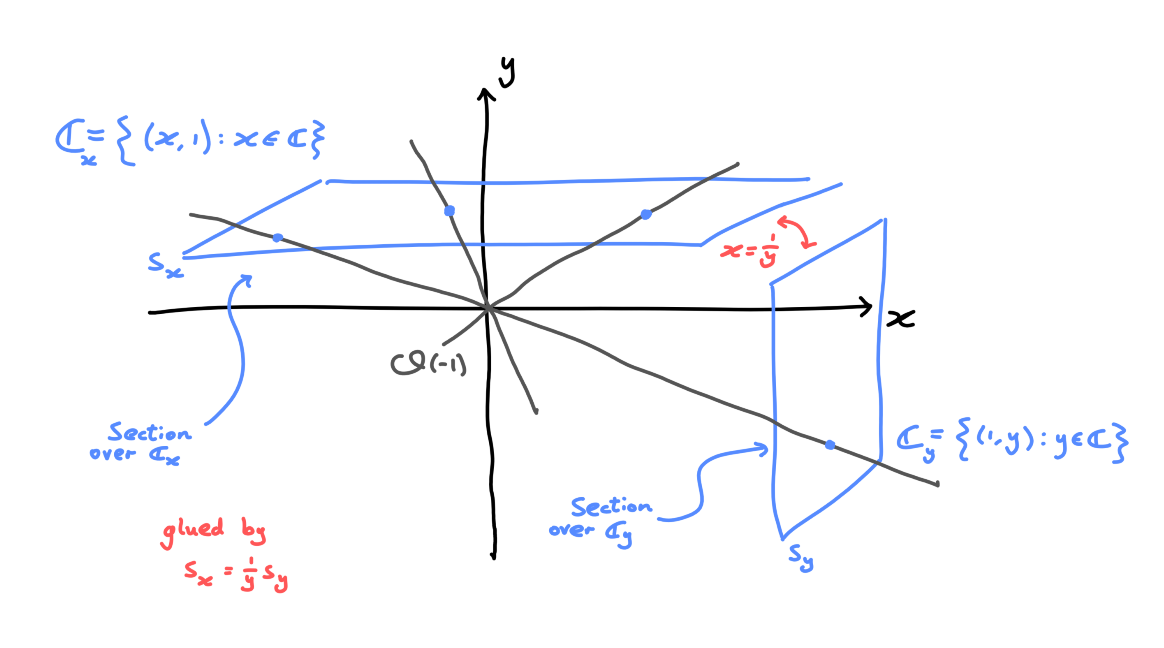 y
ℂₓ = { (x, 1) : x ∈ ℂ }
x = 1/y
sₓ
x
𝒪(-1)
Section
over ℂₓ
ℂ_y = { (1, y) : y ∈ ℂ }
Section
over ℂ_y
glued by
sₓ = 1/y s_y
s_y